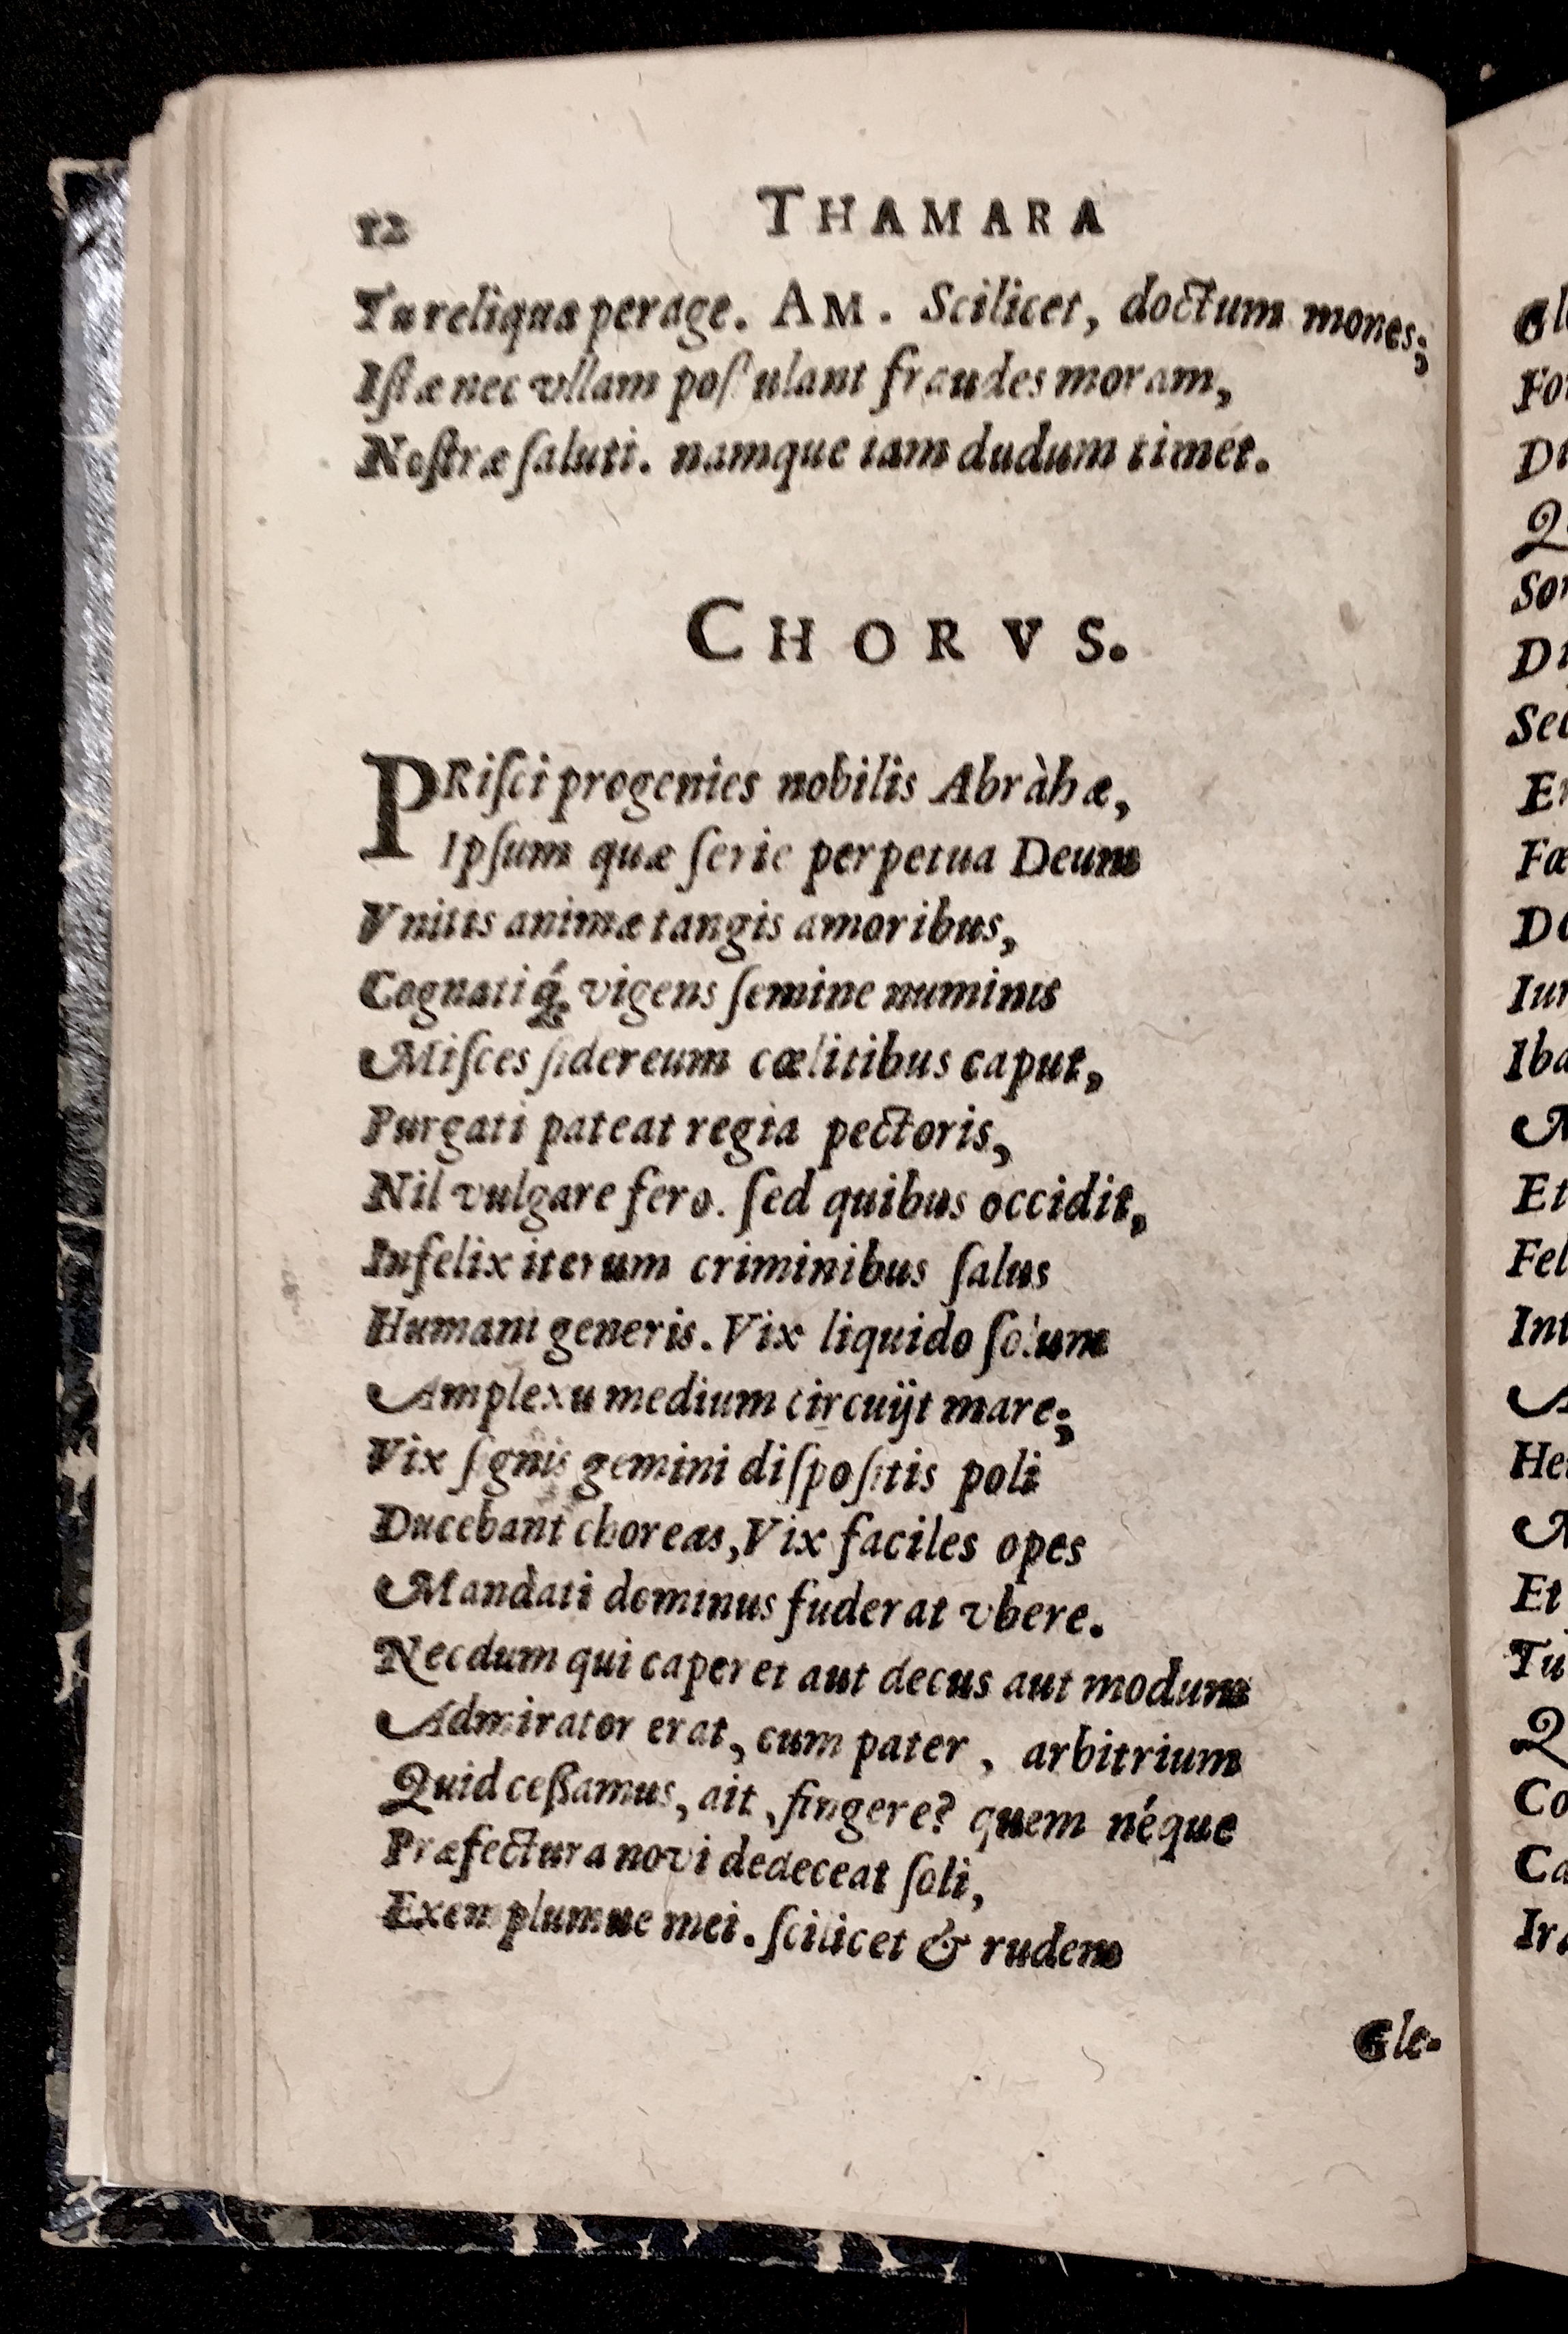 12 THAMARA
Tu reliqua perage. AM. Scilicet, doctum mones;
Iſtæ nec vllam poſtulant fraudes moram,
Noſtræ ſaluti. namque iam dudum timet.
CHORVS.
PRiſci progenies nobilis Abràhæ,
Ipſum quæ ſerie perpetua Deum
Vnitis animæ tangis amoribus,
Cognatiq́; vigens ſemine numinis
Miſces ſidereum cœlitibus caput,
Purgati pateat regia pectoris,
Nil vulgare fero. ſed quibus occidit,
Infelix iterum criminibus ſalus
Humani generis. Vix liquido ſolum
Amplexu medium circuijt mare;
Vix ſignis gemini diſpoſitis poli
Ducebant choreas, Vix faciles opes
Mandati dominus fuderat vbere.
Necdum qui caperet aut decus aut modum
Admirator erat, cum pater, arbitrium
Quid ceßamus, ait, fingere? quem néque
Præfectura novi dedeceat ſoli,
Exemplumue mei. ſcilicet & rudem
Gle-
Gl
Fo
Di
Q
Sor
Di
Sec
Er
Fæ
De
Iur
Iba
M
Et
Fel
Int
A
He
M
Et
Tu
Q
Co
Ca
Ira